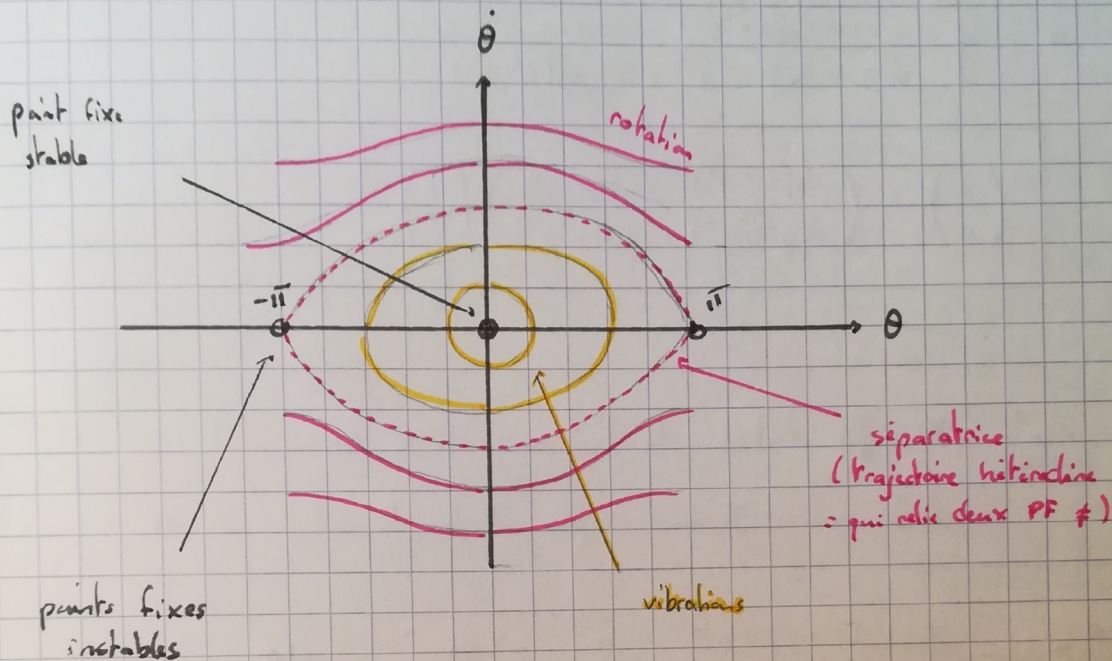 θ̇
point fixe
stable
rotation
-π
π
θ
séparatrice
(trajectoire hétérocline
= qui relie deux PF ≠)
points fixes
instables
vibrations